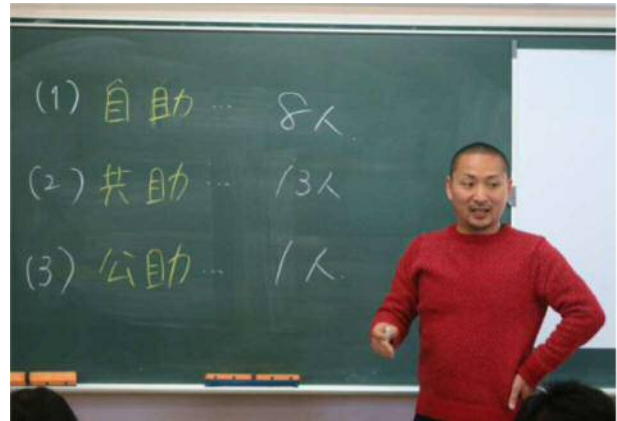 (1) 自助… 8人.
(2) 共助… 13人
(3) 公助… 1人.